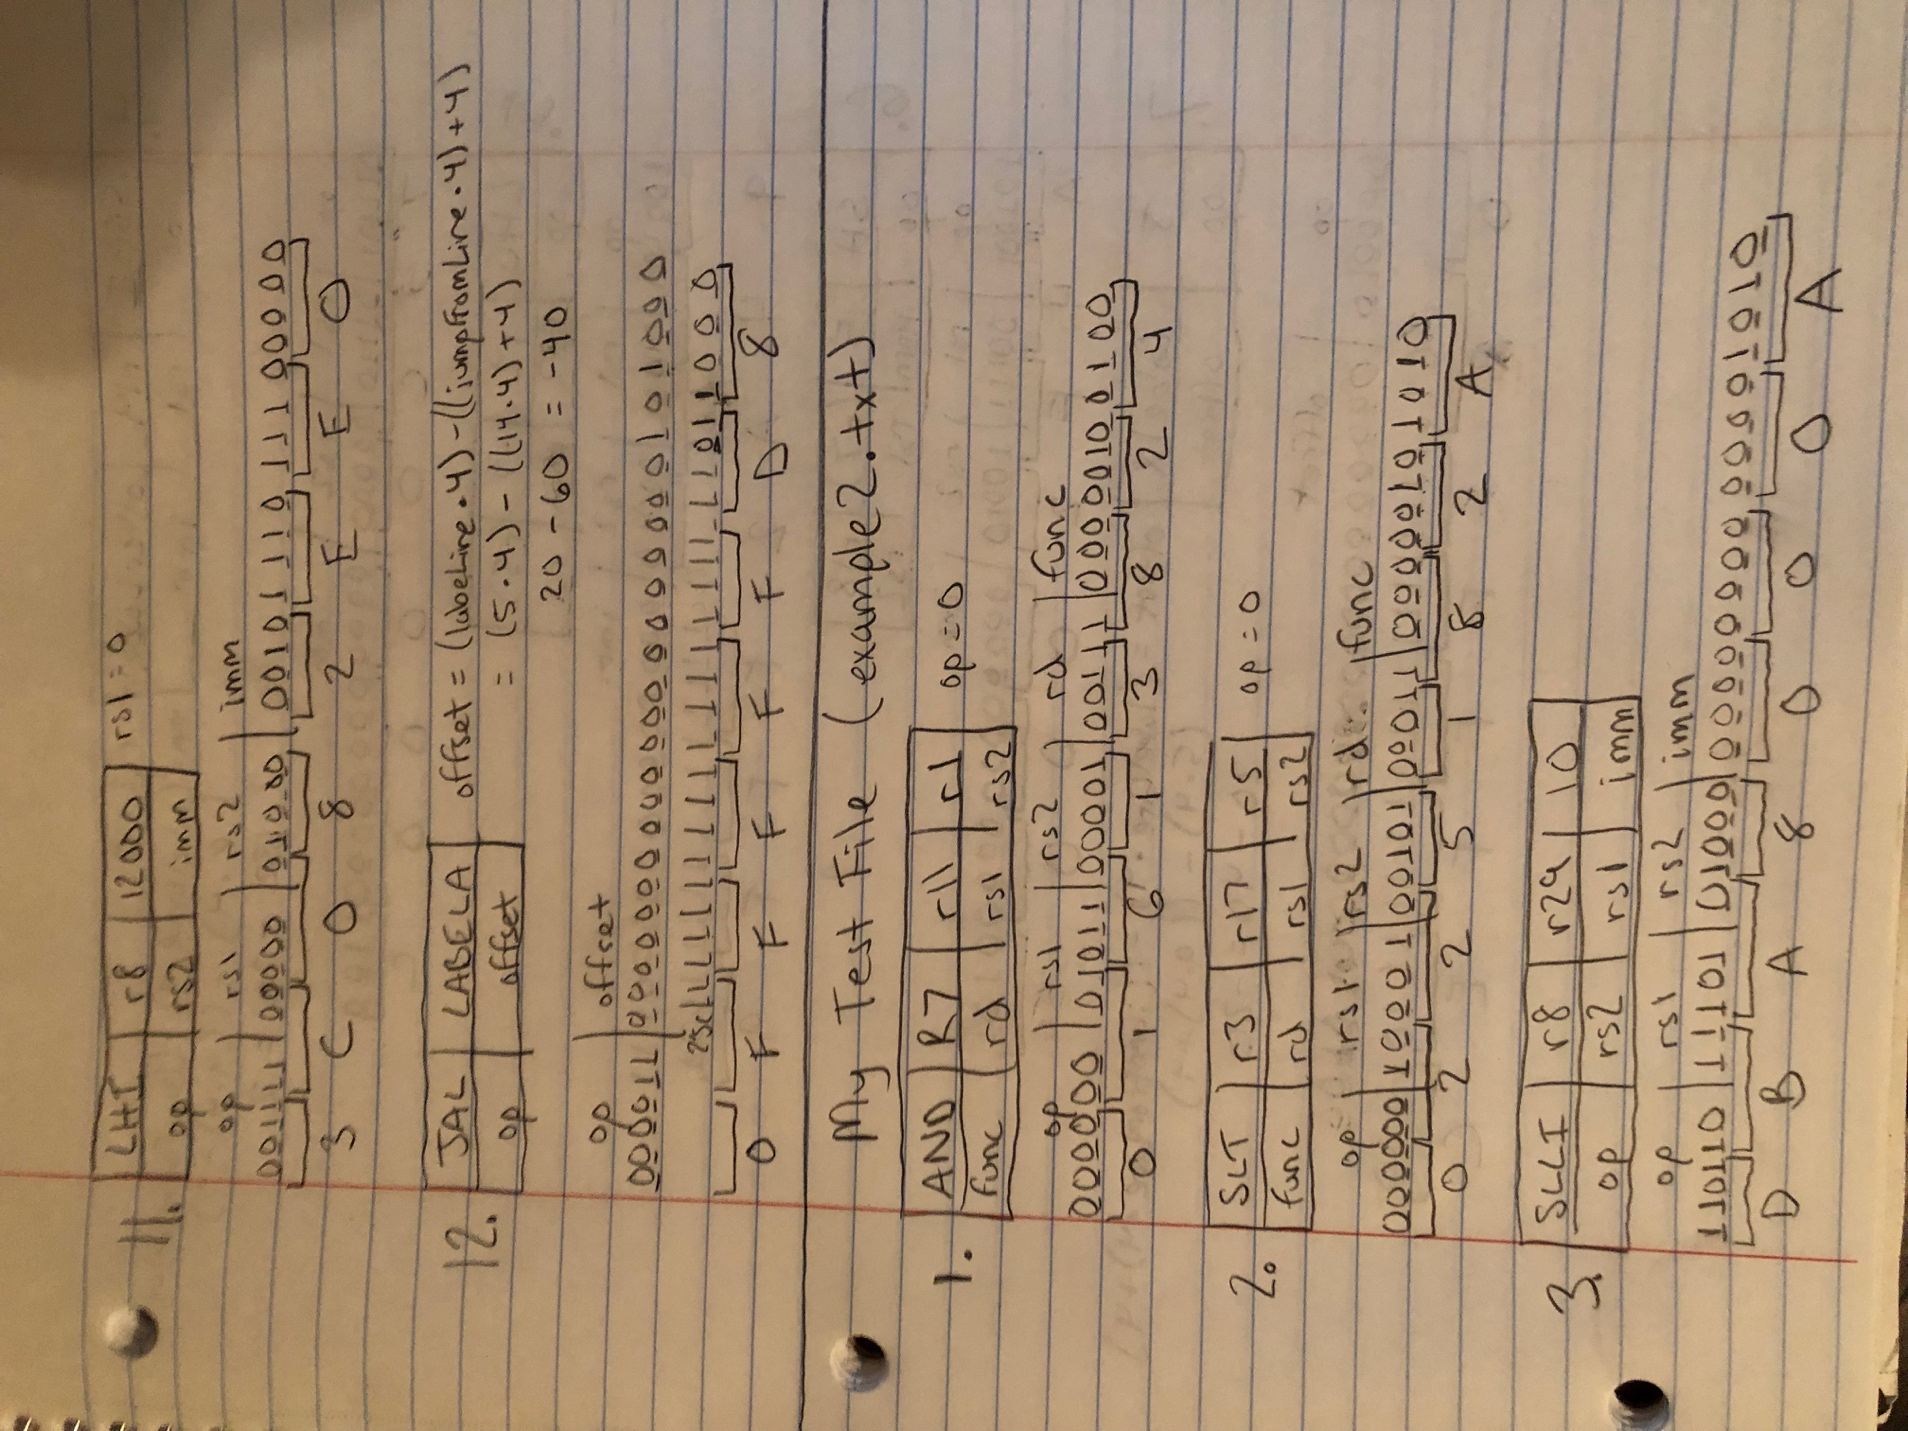 11. LHI r8 12000 rs1 = 0
op rs2 imm
op rs1 rs2 imm
001111|00000|01000|0010111011100000
3 C 0 8 2 E E 0
12. JAL LABELA offset = (labeLine·4)-((jumpFromLine·4)+4)
op offset = (5·4) - ((14·4)+4)
20 - 60 = -40
op offset
000011|00000000000000000000101000
2sc 11111111111111111111011000
0 F F F F F D 8
My Test File (example2.txt)
1. AND R7 r11 r1 op=0
func rd rs1 rs2
op rs1 rs2 rd func
000000|01011|00001|00111|00000100100
0 1 6 1 3 8 2 4
2. SLT r3 r17 r5 op=0
func rd rs1 rs2
op rs1 rs2 rd func
000000|10001|00101|00011|00000101010
0 2 2 5 1 8 2 A
3. SLLI r8 r29 10
op rs2 rs1 imm
op rs1 rs2 imm
110110|11101|01000|0000000000001010
D B A 8 0 0 0 A